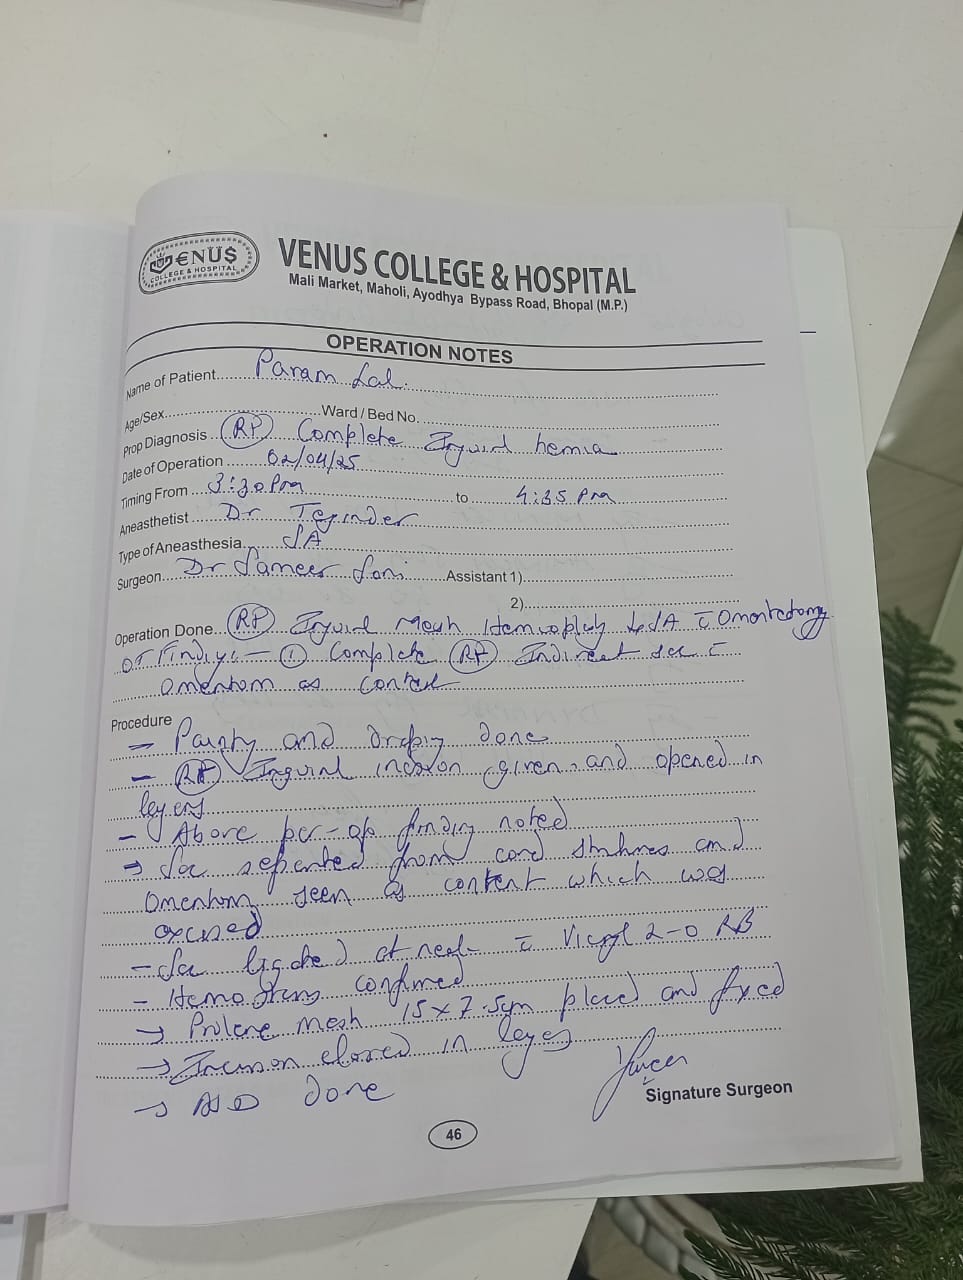 VENUS
COLLEGE & HOSPITAL
VENUS COLLEGE & HOSPITAL
Mali Market, Maholi, Ayodhya Bypass Road, Bhopal (M.P.)
OPERATION NOTES
Name of Patient Param Lal
Age/Sex Ward / Bed No.
Prop Diagnosis Complete hernia
Date of Operation 02/04/25
Timing From 3:30 Pm to 4:35 Pm
Aneasthetist Dr Tejinder
Type of Aneasthesia SA
Surgeon Dr Sameer Soni Assistant 1)
2)
Operation Done Mesh
① Complete Indirect sac
omentum as content
Procedure
- and done
- Inguinal incision given and opened in
layers
- Above per-op finding noted
→ Sac from cord and
omentum seen as content which was
excised
- Sac ligated at neck c̄ Vicryl 2-0 RB
- Hemostasis confirmed
→ Prolene mesh 15 x 7.5 placed and fixed
→ closed in layers
→ ASD done
Signature Surgeon
46